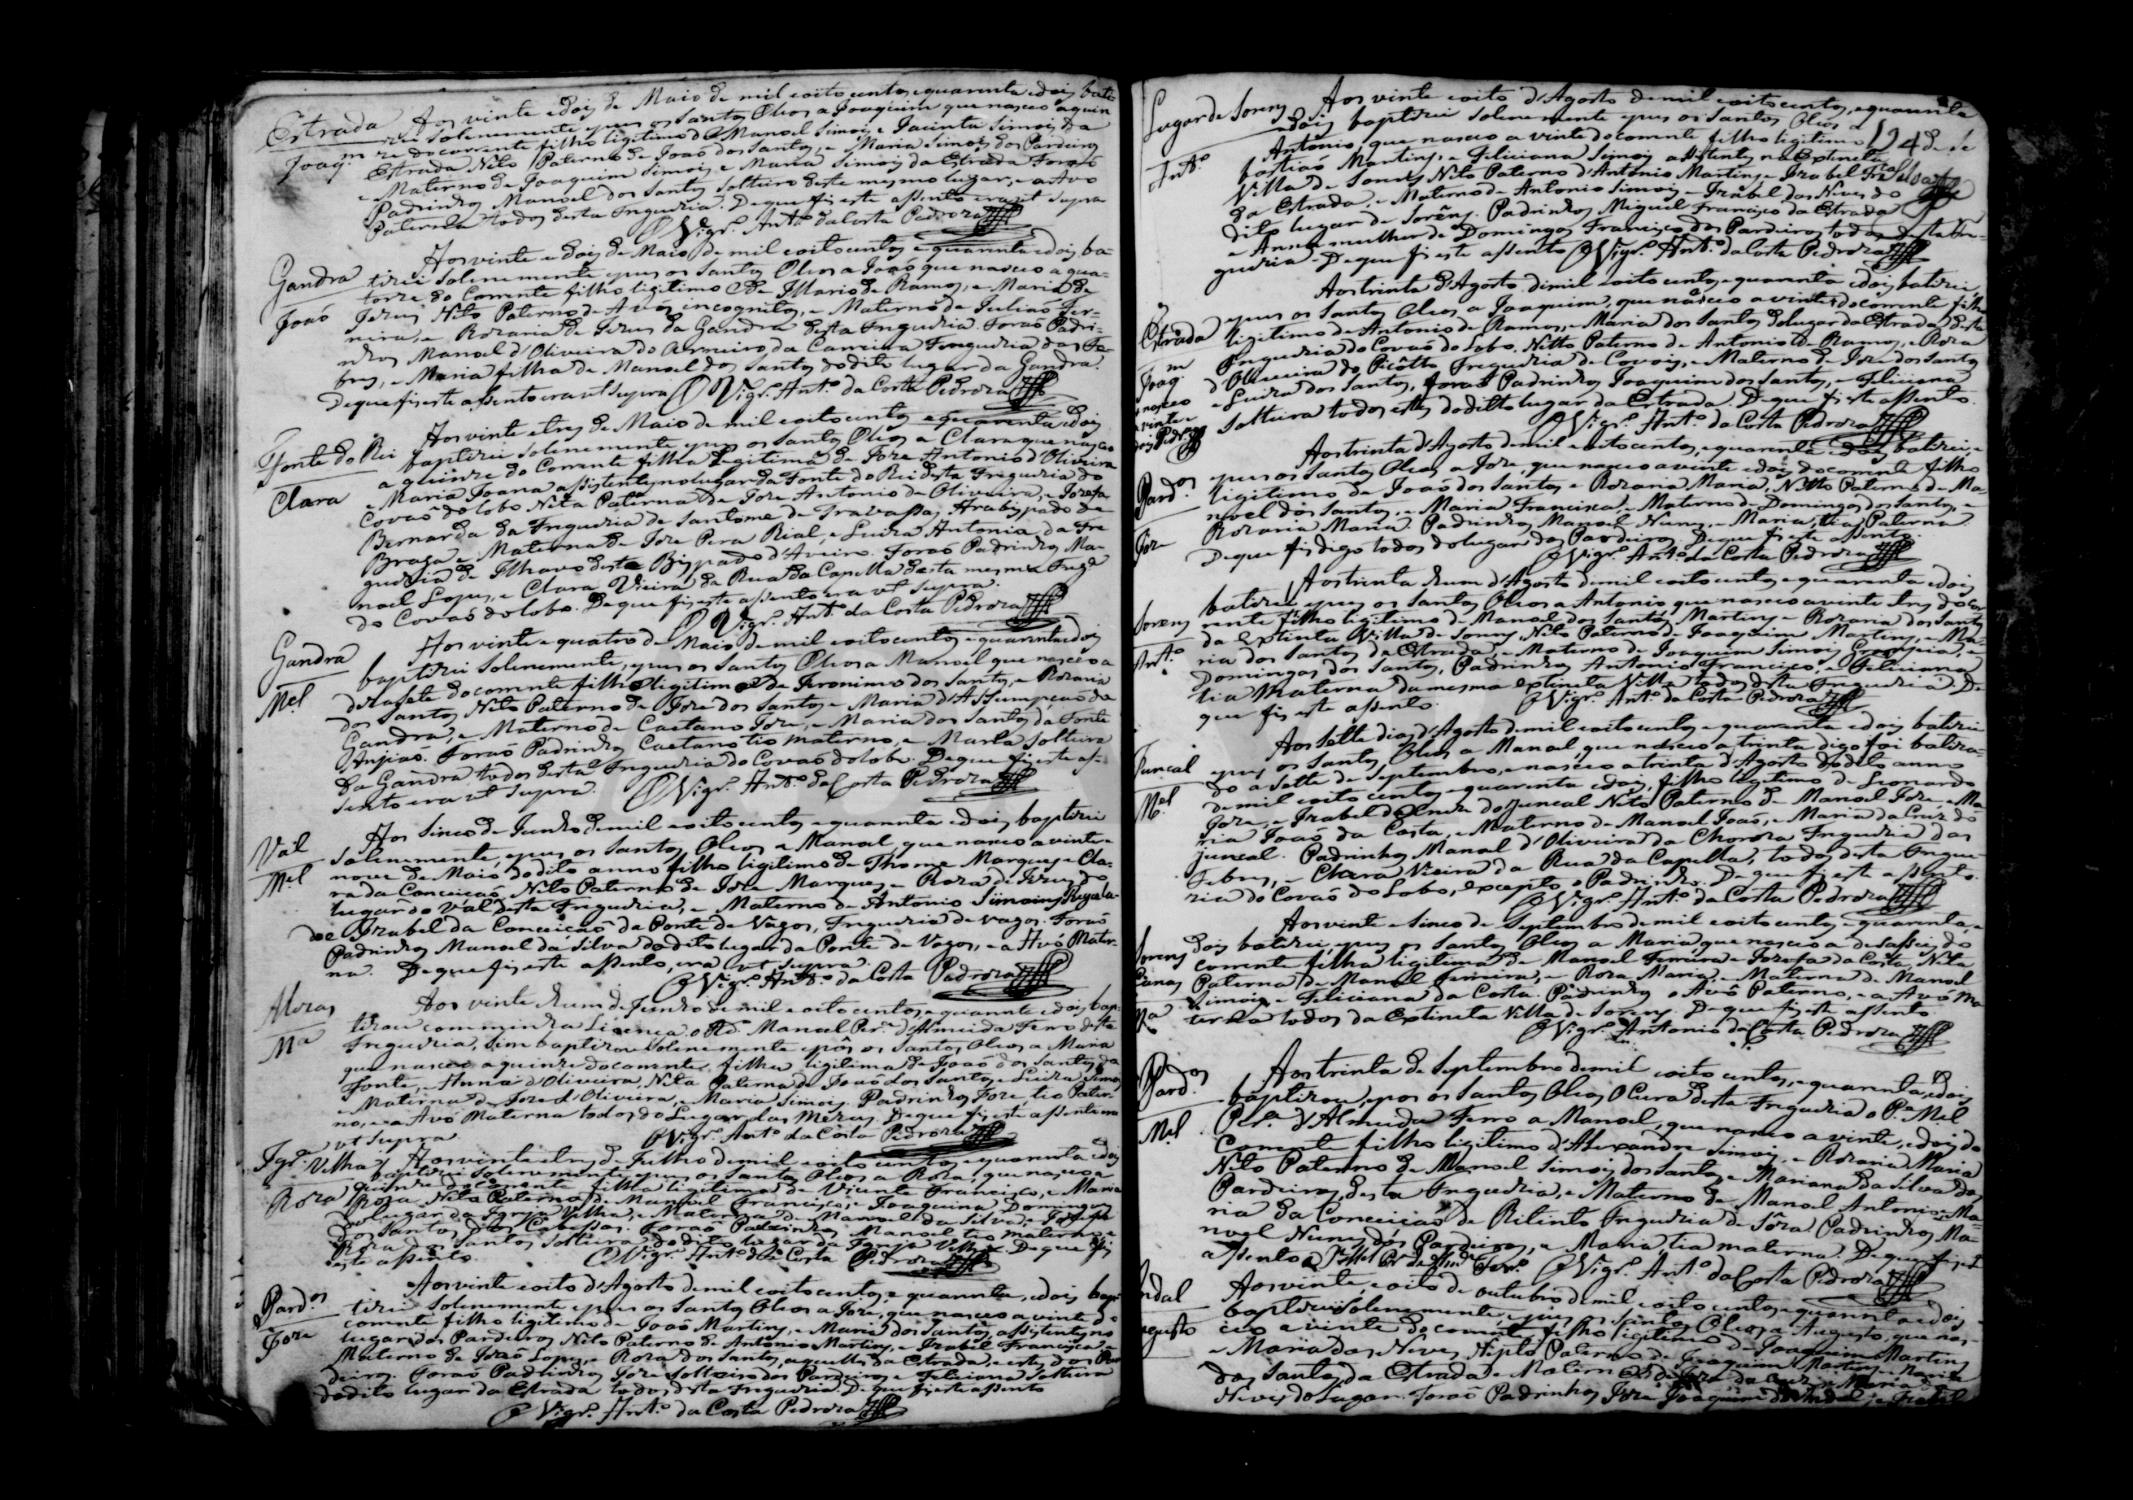 Estrada Aos vinte e dois de Maio de mil oito centos e quarenta e dois bati-
zei solenemente e puz os Santos Oleos a Joaquim que nasceo a quin
Joaqm ze do corrente filho ligitimo de Manoel Simois, e Jacinta Simois da
Estrada Neto Paterno de Joaó dos Santos, e Maria Simois dos Pardeiros
e Materno de Joaquim Simois e Maria Simois da Estrada Foraó
Padrinhos Manoel dos Santos Solteiro deste mesmo lugar, e a Avo
Paterna todos desta Freguezia. De que fiz este assento era ut supra
O Vigr.º Ant.º da Costa Pedroza
Aos vinte e dois de Maio de mil oito centos e quarenta e dois ba-
Gandra tizei solenemente e puz os Santos Oleos a Joaó que nasceo a qua-
torze do Corrente filho ligitimo de Illario de Ramos, e Maria de
Joaó Jezus Neto Paterno de Avós incognitos, e Materno de Juliaó Fer-
reira, e Rozaria de Jezus da Gandra desta Freguezia. Foraó Padri-
nhos Manoel d'Oliveira do Arneiro da Carreira Freguezia das Fe-
bres, e Maria filha de Manoel dos Santos do dito lugar da Gandra.
De que fiz este assento era ut supra O Vigr.º Ant.º da Costa Pedroza
Aos vinte e tres de Maio de mil oito centos e quarenta e dois
Fonte do Rei baptizei solenemente e puz os Santos Oleos a Clara que nasceo
a quinze do Corrente filha Legitima de Joze Antonio d'Oliveira
Clara e Maria Joana assistentes no lugar da Fonte do Rei desta Freguezia do
Covaó do Lobo Neta Paterna de Joze Antonio de Oliveira, e Jozefa
Bernarda da Freguezia de Santome de Travassos, Arabispado de
Braga e Materna de Joze Pera Rial, e Luiza Antonia, da Fre
guezia de Ilhavo deste Bispado d'Aveiro. Foraó Padrinhos Ma-
noel Lopes, e Clara Vieira da Rua da Capella desta mesma Fregª
do Covaó do Lobo. De que fiz este assento era ut supra.
O Vigr.º Ant.º da Costa Pedroza
Aos vinte e quatro de Maio de mil oito centos e quarenta e dois
Gandra baptizei solenemente, e puz os Santos Oleos a Manoel que nasceo a
dezasete do corrente filho ligitimo de Jeronimo dos Santos, e Rozaria
Mel dos Santos Neto Paterno de Joze dos Santos, e Maria d'Assumpçaó da
Gandra, e Materno de Caetano Joze, e Maria dos Santos da Fonte
Anjiaó. Foraó Padrinhos Caetano tio materno, e Maria Solteira
da Gandra, todos desta Freguezia do Covaó do Lobo. De que fiz este as-
sento era ut supra. O Vigr.º Ant.º da Costa Pedroza
Aos Sinco de Junho de mil e oito centos e quarenta e dois baptizei
Val solenemente, e puz os Santos Oleos a Manoel que nasceo a vinte e
nove de Maio do dito anno filho ligitimo de Thome Marques e Cla-
Mel ra da Conceiçaó Neto Paterno de Joze Marques, e Roza de Jezus do
lugar do Val desta Freguezia, e Materno de Antonio Simoins Regala-
do e Izabel da Conceiçaó da Ponte de Vagos, Freguezia de Vagos. Foraó
Padrinhos Manoel da Silva do dito lugar da Ponte de Vagos, e a Avó Mater-
na. De que fiz este assento, era ut supra.
O Vigr.º Ant.º da Costa Pedroza
Aos vinte e hum de Junho de mil e oito centos, e quarenta e dois bap-
tizou com minha Licença o Rd.º Manoel Per.ª d'Almeida Ferro desta
Mª Freguezia, sim baptizou solenemente e pôs os Santos Oleos a Maria
que nasceo a quinze do corrente, filha ligitima de Joaó dos Santos da
Fonte, e Anna d'Oliveira, Neta Paterna de Joaó dos Santos e Luiza Simois
e Materna de Joze d'Oliveira, e Maria Simois. Padrinhos Joze tio Pater-
no, e a Avó Materna todos do Lugar das Mezas. De que fiz este assento era
ut supra O Vigr.º Ant.º da Costa Pedroza
Igr.ª Velha Aos vinte e tres de Julho de mil e oito centos e quarenta e dois
baptizei solenemente e puz os Santos Oleos a Roza, que nasceo a
Roza quinze do corrente filha ligitima de Vicente Francisco, e Maria
Roza Neta Paterna de Manoel Francisco, e Joaquina Domingues
do lugar da Igreja Velha, e Materna de Manoel da Silva, e Jozefa
dos Santos, dos Cabessos. Foraó Padrinhos Manoel tio materno, e
Roza dos Santos, Solteira, do dito lugar da Igreja Velha. De que fiz
este assento. O Vigr.º Ant.º da Costa Pedroza
Aos vinte e oito d'Agosto de mil oito centos e quarenta, e dois bap-
Pard.os tizei solenemente e puz os Santos Oleos a Joze, que nasceo a vinte do
corrente filho ligitimo de Joaó Martins, e Maria dos Santos, assistentes no
Joze lugar dos Pardeiros Neto Paterno de Antonio Martins, e Izabel Francisca e
Materno de Joaó Lopes, e Roza dos Santos, aquelles da Estrada, e estes dos Par
deiros. Foraó Padrinhos Joze Solteiro dos Pardeiros, e Feliciana Solteira
do dito lugar da Estrada todos desta Freguezia. De que fiz este assento
O Vigr.º Ant.º da Costa Pedroza
124
Lugar de Sorens Aos vinte e oito d'Agosto de mil oito centos, e quarenta
e dois baptizei solenemente e puz os Santos Oleos a
Ant.º Antonio, que nasceo a vinte do corrente filho ligitimo de Se
bastiaó Martins, e Feliciana Simois assistentes na Extincta
Villa de Sorens Neto Paterno d'Antonio Martins, e Izabel Frª
da Estrada, e Materno de Antonio Simois, e Izabel das Neves do
dito lugar de Sorêns. Padrinhos Miguel Francisco da Estrada
e Anna mulher de Domingos Francisco dos Pardeiros todos desta Fre-
guezia. De que fiz este assento O Vigr.º Ant.º da Costa Pedroza
Aos trinta d'Agosto de mil oito centos e quarenta e dois batizei,
e puz os Santos Oleos a Joaquim, que nasceo a vinte do corrente filho
Estrada ligitimo de Antonio de Ramos, e Maria dos Santos do lugar da Estrada desta
Freguezia do Covaó do Lobo. Netto Paterno de Antonio de Ramos, e Roza
Joaq.m d'Oliveira do Picôtto Freguezia de Covois, e Materno de Joze dos Santos
nasceo e Luiza dos Santos, foraó Padrinhos Joaquim dos Santos, e Feliciana
a vinte e Solteira todos estes do dito lugar da Estrada. De que fiz este assento.
dois Pedroza O Vigr.º Ant.º da Costa Pedroza
Aos trinta d'Agosto de mil e oito centos, e quarenta e dois batizei, e
puz os Santos Oleos a Joze, que nasceo a vinte e dois do corrente filho
Pard.os ligitimo de Joaó dos Santos, e Rozaria Maria, Netto Paterno de Ma-
noel dos Santos, e Maria Francisca, e Materno de Domingos dos Santos, e
Joze Rozaria Maria Padrinhos Manoel Nunes, e Maria, tia Paterna
De que fiz digo todos do lugar dos Pardeiros De que fiz este assento.
O Vigr.º Ant.º da Costa Pedroza
Aos trinta e hum d'Agosto de mil oito centos e quarenta e dois
batizei, e puz os Santos Oleos a Antonio que nasceo a vinte e tres do cor
Sorens rente filho ligitimo de Manoel dos Santos Martins e Rozaria dos Santos
da Extinta Villa de Sorens Neto Paterno de Joaquim Martins, e Ma-
Ant.º ria dos Santos da Estrada, e Materno de Joaquim Simois
Domingas dos Santos, Padrinhos Antonio Francisco, e Feliciana
tia Materna da mesma extincta Villa todos desta Freguezia. De
que fiz este assento. O Vigr.º Ant.º da Costa Pedroza
Aos sette dias d'Agosto de mil oito centos e quarenta e dois batizei
Juncal e puz os Santos Oleos a Manoel que nasceo a trinta digo foi batiza-
do a sette de Septembro, e nasceo a trinta d'Agosto do dito anno
Mel de mil oito centos e quarenta e dois, filho ligitimo de Leonardo
Joze, e Izabel da Cruz do Juncal Neto Paterno de Manoel Joze, e Ma-
ria Joaó da Costa, e Materno de Manoel Joaó, e Maria da Cruz do
Juncal. Padrinhos Manoel d'Oliveira da Chorosa Freguezia das
Febres, e Clara Vieira da Rua da Capella, todos desta Fregue-
zia do Covaó do Lobo, excepto o Padrinho. De que fiz este assento.
O Vigr.º Ant.º da Costa Pedroza
Aos vinte e sinco de Septembro de mil oito centos e quarenta, e
Sorens dois batizei, e puz os Santos Oleos a Maria, que nasceo a desasseis do
corrente filha ligitima de Manoel Ferreira e Jozefa da Costa Neta
Paterna de Manoel Ferreira, e Roza Maria, e Materna de Manoel
Simois, e Feliciana da Costa. Padrinhos o Avô Paterno, e a Avó Ma
Mª terna todos da Extincta Villa de Sorens. De que fiz este assento
O Vigr.º Antonio da Costa Pedroza
Aos trinta de Septembro de mil oito centos, e quarenta e dois
Pard.os baptizou, e pos os Santos Oleos O Cura desta Freguezia o P.e Mel
Per.ª d'Almeida Ferro a Manoel, que nasceo a vinte, e dois do
Mel Corrente filho ligitimo d'Alexandre Simois, e Rozaria Maria
Neto Paterno de Manoel Simois dos Santos, e Mariana da Silva dos
Pardeiros, desta Freguezia, e Materno de Manoel Antonio e Ma-
ria da Conceiçaó de Ritinto Freguezia de Sôza Padrinhos Ma-
noel Nunes dos Pardeiros, e Maria tia materna. De que fiz este
assento O Vigr.º Ant.º da Costa Pedroza
Aos vinte, e oito de outubro de mil oito centos, e quarenta e dois
baptizei solenemente, e puz os Santos Oleos a Augusto, que nas-
ceo a vinte do corrente filho ligitimo de Joaquim Martins
e Maria das Neves Neto Paterno de Joaquim Martins e Maria
dos Santos, da Estrada, e Materno
Neves do Lugar. Foraó Padrinhos Joze Joaquim